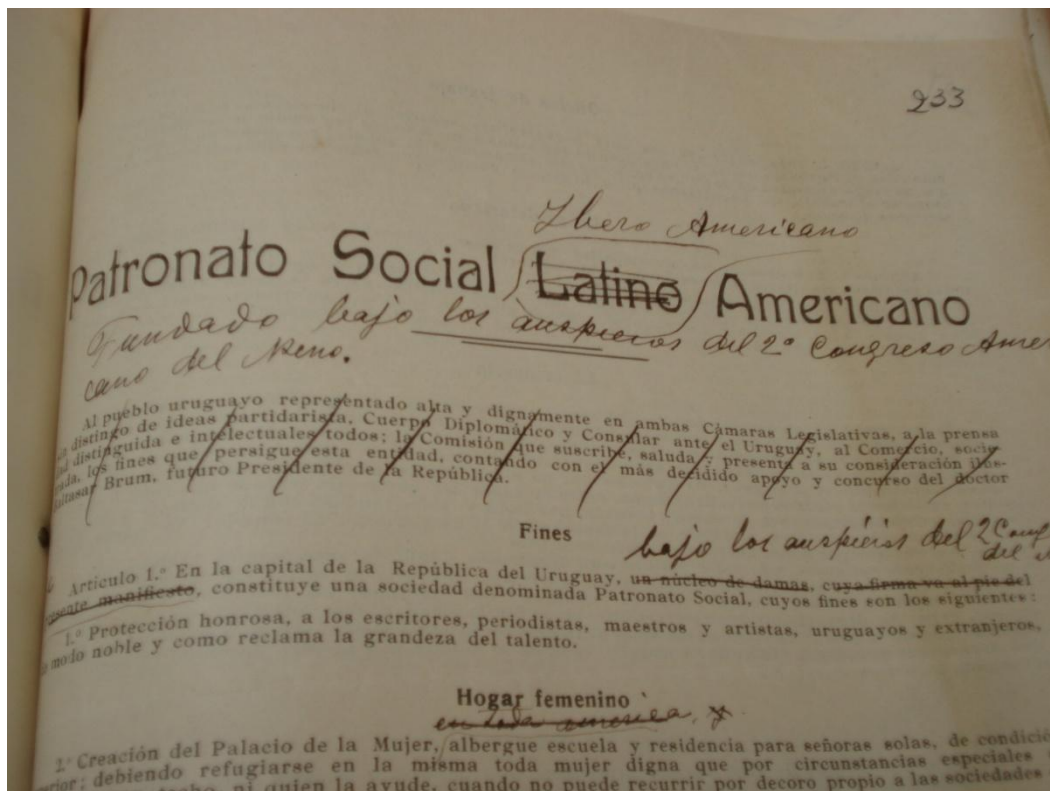 233
Ibero Americano
Patronato Social Latino Americano
Fundado bajo los auspicios del 2º Congreso Ameri
cano del Neno.
Al pueblo uruguayo representado alta y dignamente en ambas Cámaras Legislativas, a la prensa
distingo de ideas partidarista, Cuerpo Diplomático y Consular ante el Uruguay, al Comercio, socie-
dad distinguida e intelectuales todos; la Comisión que suscribe, saluda y presenta a su consideración ilus-
trada, los fines que persigue esta entidad, contando con el más decidido apoyo y concurso del doctor
Baltasar Brum, futuro Presidente de la República.
Fines
bajo los auspicios del 2 Cong
del
Artículo 1.º En la capital de la República del Uruguay, un núcleo de damas, cuya firma va al pie del
presente manifiesto, constituye una sociedad denominada Patronato Social, cuyos fines son los siguientes:
1.º Protección honrosa, a los escritores, periodistas, maestros y artistas, uruguayos y extranjeros,
modo noble y como reclama la grandeza del talento.
Hogar femenino
en toda america, y
2.º Creación del Palacio de la Mujer, albergue escuela y residencia para señoras solas, de condició
erior; debiendo refugiarse en la misma toda mujer digna que por circunstancias especiales
ni quien la ayude, cuando no puede recurrir por decoro propio a las sociedades